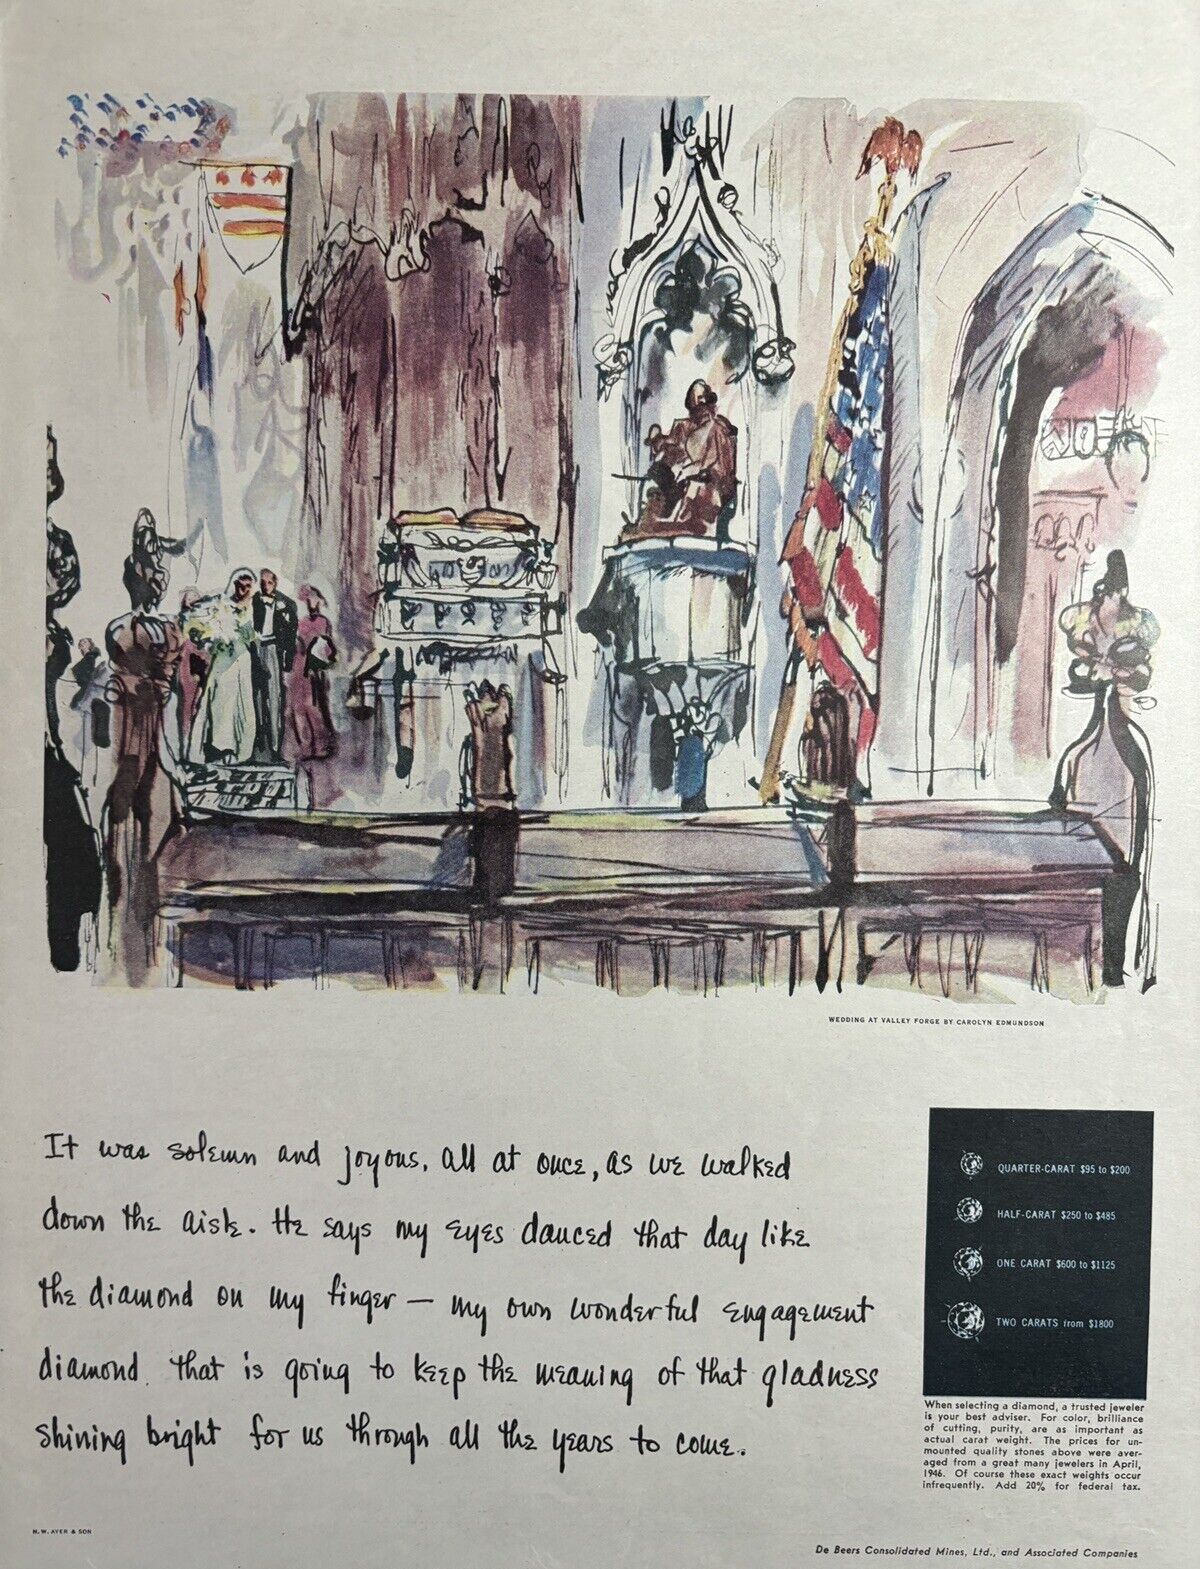 WEDDING AT VALLEY FORGE BY CAROLYN EDMUNDSON
It was solemn and joyous, all at once, as we walked
down the aisle. He says my eyes danced that day like
the diamond on my finger — my own wonderful engagement
diamond that is going to keep the meaning of that gladness
shining bright for us through all the years to come.
QUARTER-CARAT $95 to $200
HALF-CARAT $250 to $485
ONE CARAT $600 to $1125
TWO CARATS from $1800
When selecting a diamond, a trusted jeweler
is your best adviser. For color, brilliance
of cutting, purity, are as important as
actual carat weight. The prices for un-
mounted quality stones above were aver-
aged from a great many jewelers in April,
1946. Of course these exact weights occur
infrequently. Add 20% for federal tax.
N. W. AYER & SON
De Beers Consolidated Mines, Ltd., and Associated Companies